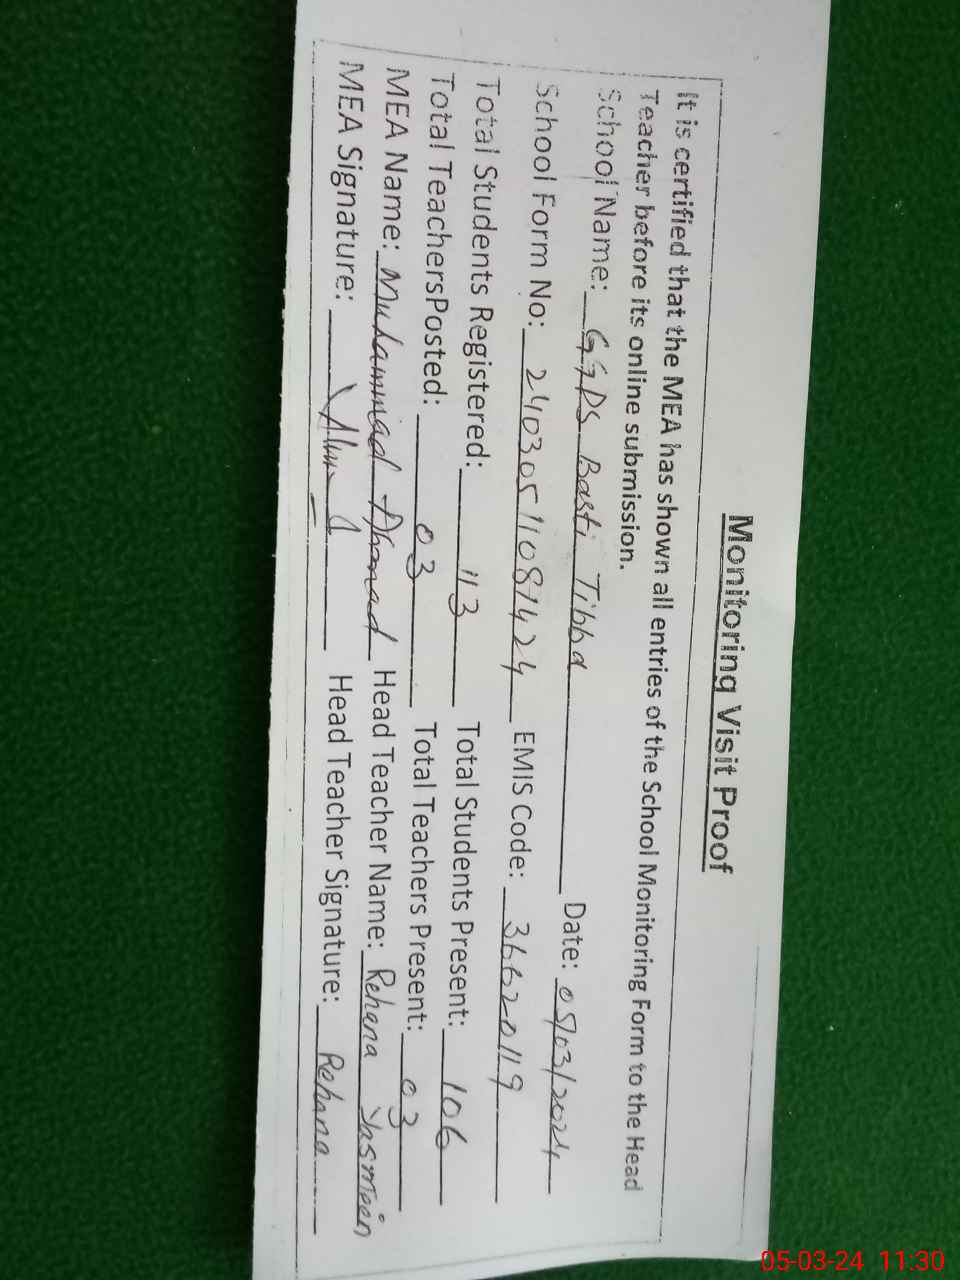 Monitoring Visit Proof
It is certified that the MEA has shown all entries of the School Monitoring Form to the Head
Teacher before its online submission.
School Name: GGPS Basti Tibba Date: 05/03/2024
School Form No: 24030511081424 EMIS Code: 36620119
Total Students Registered: 113 Total Students Present: 106
Total TeachersPosted: 03 Total Teachers Present: 03
MEA Name: Muhammad Ahmad Head Teacher Name: Rehana Yasmeen
MEA Signature: Head Teacher Signature: Rehana
05-03-24 11:30